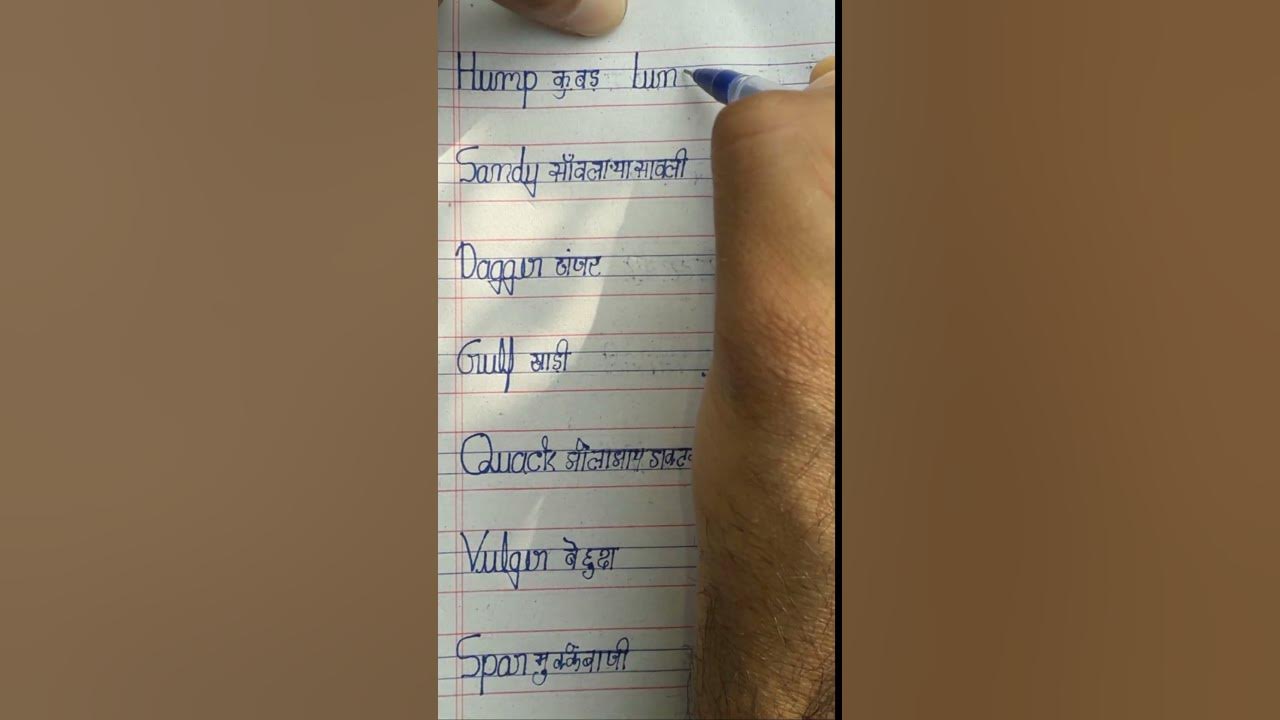 Hump कुबड़ Lum
Sandy साँवला या सावली
Dagger खंजर
Gulf खाड़ी
Quack झोलाछाप डाक्ट
Vulgar बेहुदा
Spar मुक्केबाजी